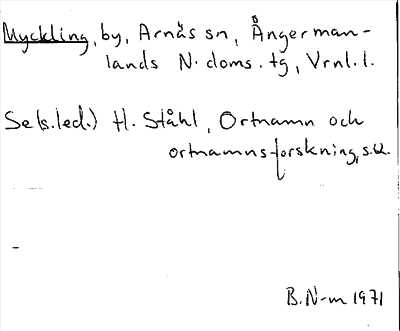 Myckling, by, Arnäs sn, Ångerman-
lands N. doms. tg, Vrnl. l.
Se (s. led.) H. Ståhl, Ortnamn och
ortnamnsforskning, s.
B. N-m 1971